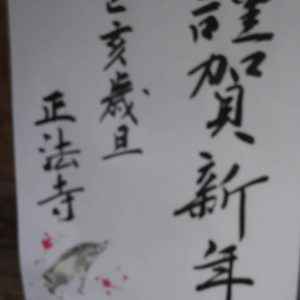 謹賀新年
己亥歳旦
正法寺